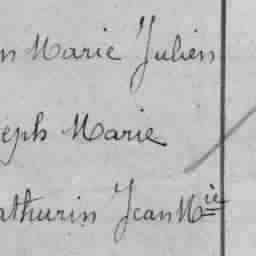 n Marie Julien
eph Marie
athurin Jean Mie